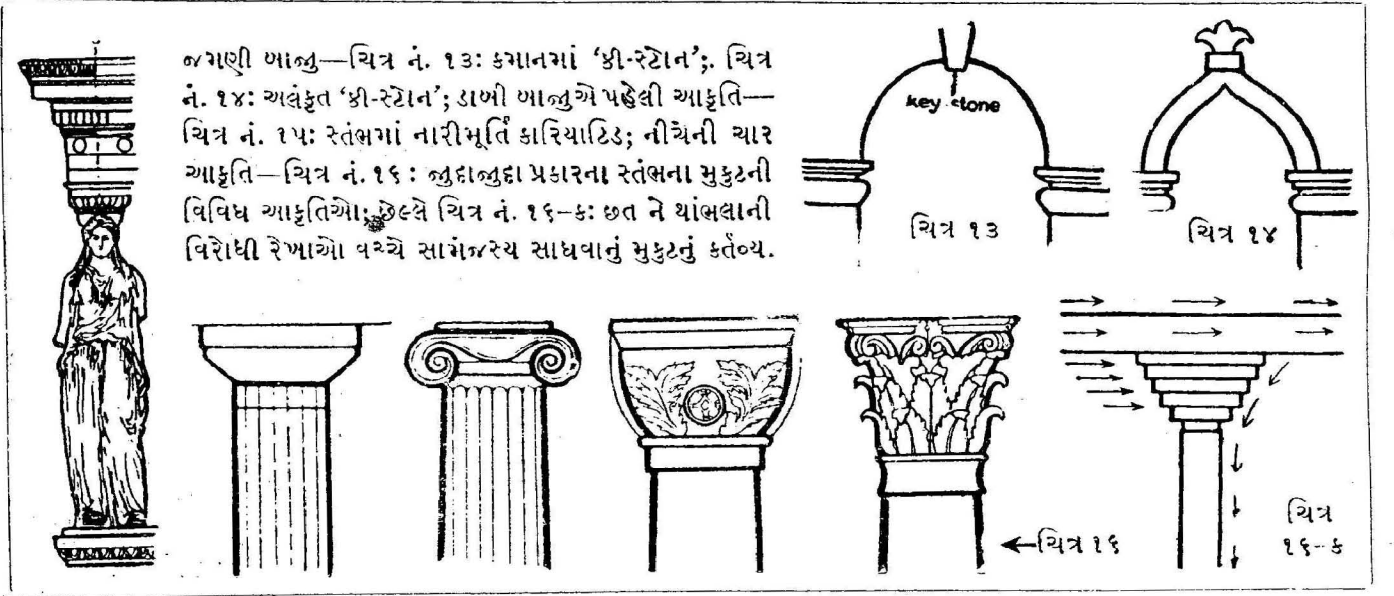 જમણી બાજુ—ચિત્ર નં. ૧૩: કમાનમાં ‘કી-સ્ટોન’;. ચિત્ર
નં. ૧૪: અલંકૃત ‘કી-સ્ટોન’; ડાબી બાજુએ પહેલી આકૃતિ—
ચિત્ર નં. ૧૫: સ્તંભમાં નારીમૂર્તિ કારિયાટિડ; નીચેની ચાર
આકૃતિ—ચિત્ર નં. ૧૬ : જુદાજુદા પ્રકારના સ્તંભના મુકુટની
વિવિધ આકૃતિઓ; છેલ્લે ચિત્ર નં. ૧૬-ક: છત ને થાંભલાની
વિરોધી રેખાઓ વચ્ચે સામંજસ્ય સાધવાનું મુકુટનું કર્તવ્ય.
key stone
ચિત્ર ૧૩
ચિત્ર ૧૪
ચિત્ર ૧૬
ચિત્ર
૧૬-ક